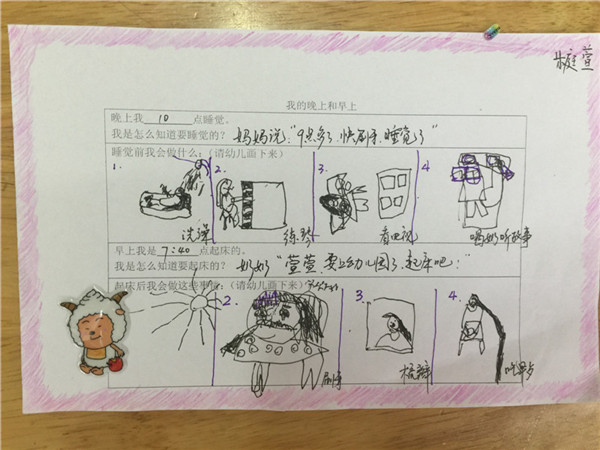 庭萱
我的晚上和早上
晚上我 10 点睡觉。
我是怎么知道要睡觉的?妈妈说:"9点多了,快刷牙,睡觉了"
睡觉前我会做什么:(请幼儿画下来)
1. 2. 3. 4
洗澡 练琴 看电视 喝奶听故事
早上我是 7:40 点起床的。
我是怎么知道要起床的?妈妈"萱萱,要上幼儿园了,起床吧!"
起床后我会做这些事情:(请幼儿画下来)
2. 3. 4.
刷牙 梳辫 吃早点